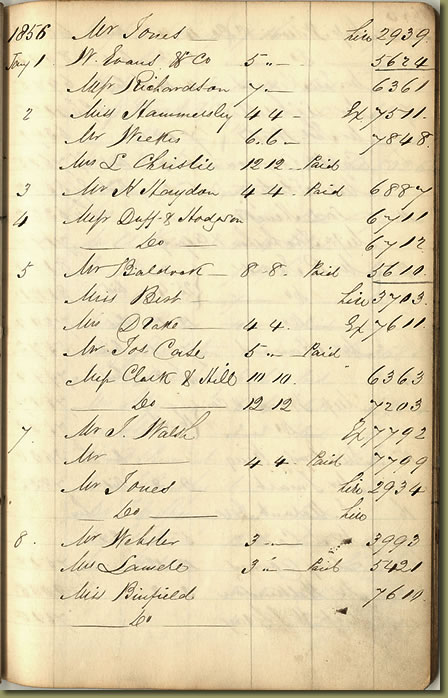 1856 Mr Jones — Lire 2939
Jany 1 W. Evans & Co 5 " — 5624
Messrs Richardson 7 " — 6361
2 Miss Hammersley 4 4 - Ex 7511.
Mr Weekes 6.6 - 7848
Mrs L Christie 12 12 - Paid
3 Mr H Haydon 4 4 . Paid 6887
4 Messrs Duff & Hodgson 6711
— Do — 6712
5 Mr — 8 - 8 . Paid 5610
Miss Best — 3703
Mrs Drake — 4 4 . Ex 7611
Mr Jos Case 5 " — Paid
Messrs Clark & Hill 10 10 . 6363
— Do — 12 12 7203
7. Mr J. Walsh Ex 7792
Mr — 4 4 . Paid 7799
Mr Jones 2934
— Do —
8. Mr Webster 3 — 3993
Mrs 3 " — Paid 5421
Miss Binfield 7610
— Do —